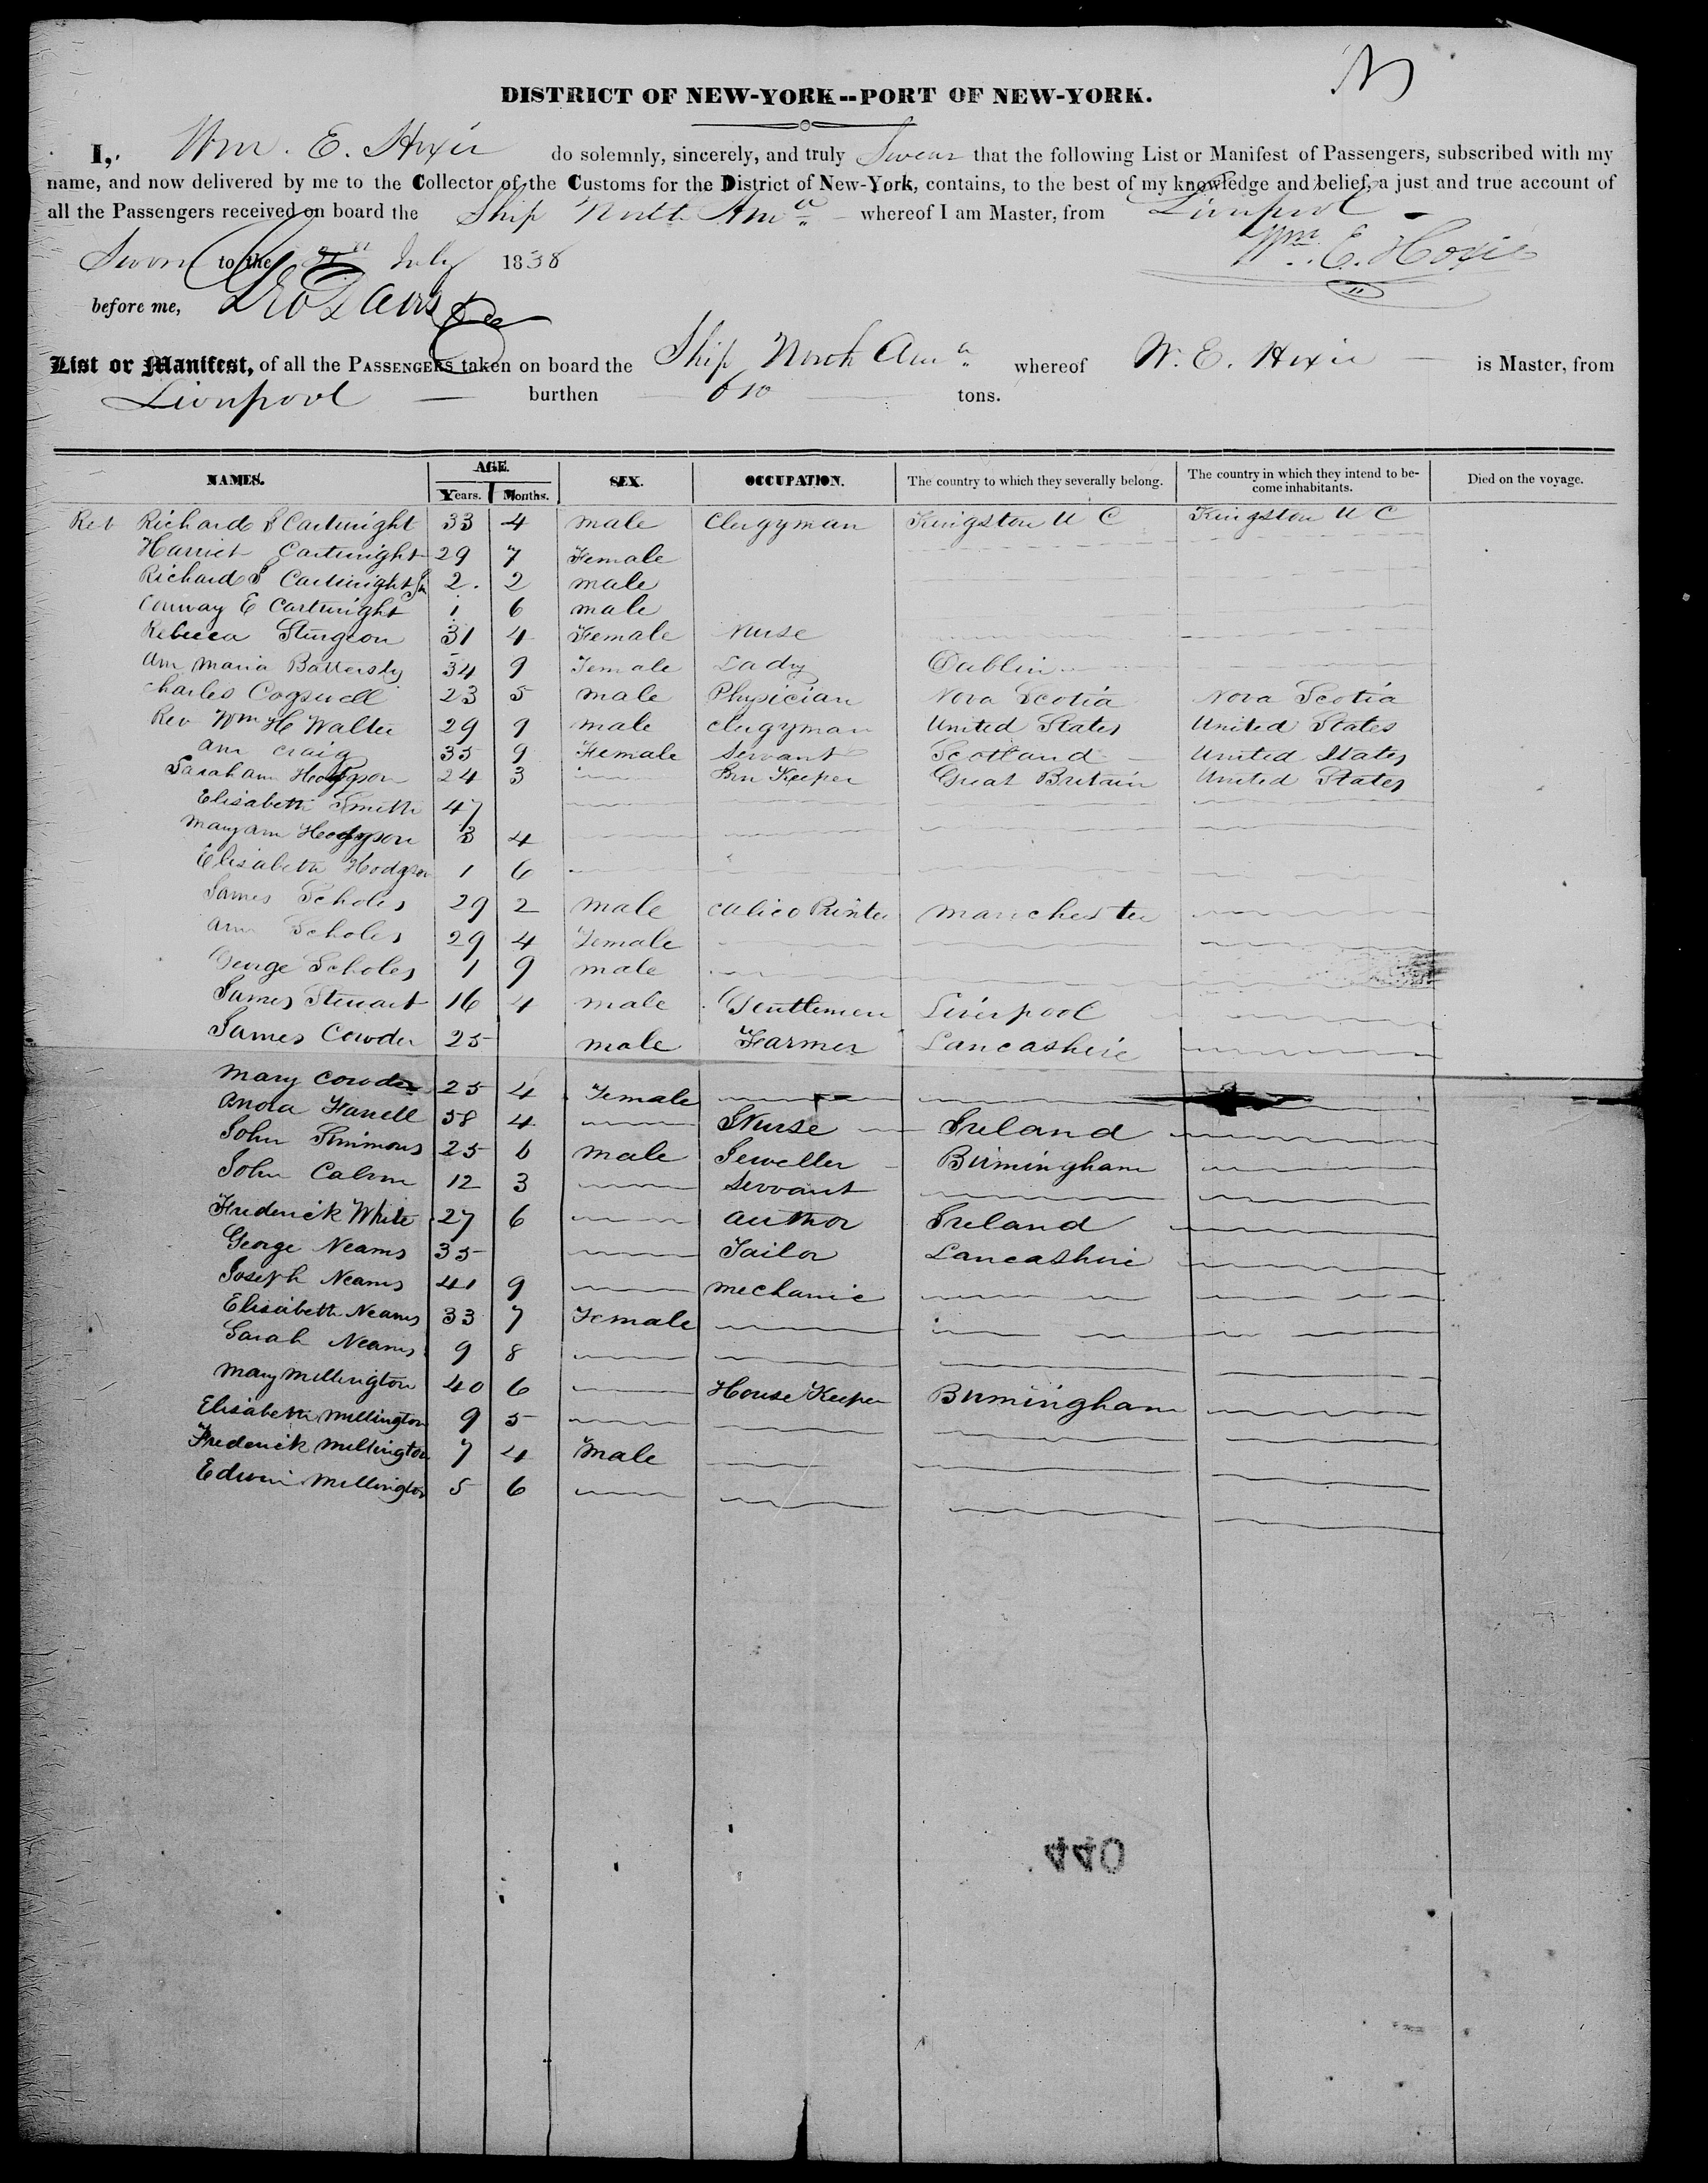 DISTRICT OF NEW-YORK--PORT OF NEW-YORK.
I, Wm. E. Hoxie do solemnly, sincerely, and truly Swear that the following List or Manifest of Passengers, subscribed with my
name, and now delivered by me to the Collector of the Customs for the District of New-York, contains, to the best of my knowledge and belief, a just and true account of
all the Passengers received on board the Ship North Ama whereof I am Master, from Liverpool
Wm. E. Hoxie
Sworn to the July 1838
before me,
List or Manifest, of all the PASSENGERS taken on board the Ship North Ama whereof W. E. Hoxie is Master, from
Liverpool burthen 610 tons.
NAMES. AGE. Years. Months. SEX. OCCUPATION. The country to which they severally belong. The country in which they intend to become inhabitants. Died on the voyage.
Rev Richard D Cartwright 33 4 male Clergyman Kingston U C Kingston U C
Harriet Cartwright 29 7 Female
Richard J Cartwright Jn 2 2 male
Conway E Cartwright 1 6 male
Rebecca Sturgeon 31 4 Female Nurse
Ann Maria Battersby 34 9 Female Lady Dublin
Charles Cogswell 23 5 male Physician Nova Scotia Nova Scotia
Rev Wm H Walter 29 9 male clergyman United States United States
Ann Craig 35 9 Female Servant Scotland United States
Sarah Ann Hodgson 24 3 Inn Keeper Great Britain United States
Elisabeth Smith 47
Mary Ann Hodgson 3 4
Elisabeth Hodgson 1 6
James Scholes 29 2 male calico Printer Manchester
Ann Scholes 29 4 Female
George Scholes 1 9 male
James Stewart 16 4 male Gentlemen Liverpool
James Cowder 25 male Farmer Lancashire
Mary Cowder 25 4 Female
Anora Farrell 58 4 Nurse Ireland
John Simmons 25 6 male Jeweller Birmingham
John Calvin 12 3 Servant
Frederick White 27 6 Author Ireland
George Neams 35 Tailor Lancashire
Joseph Neams 41 9 mechanic
Elisabeth Neams 33 7 Female
Sarah Neams 9 8
Mary Millington 40 6 House Keeper Birmingham
Elisabeth Millington 9 5
Frederick Millington 7 4 Male
Edwin Millington 5 6
440